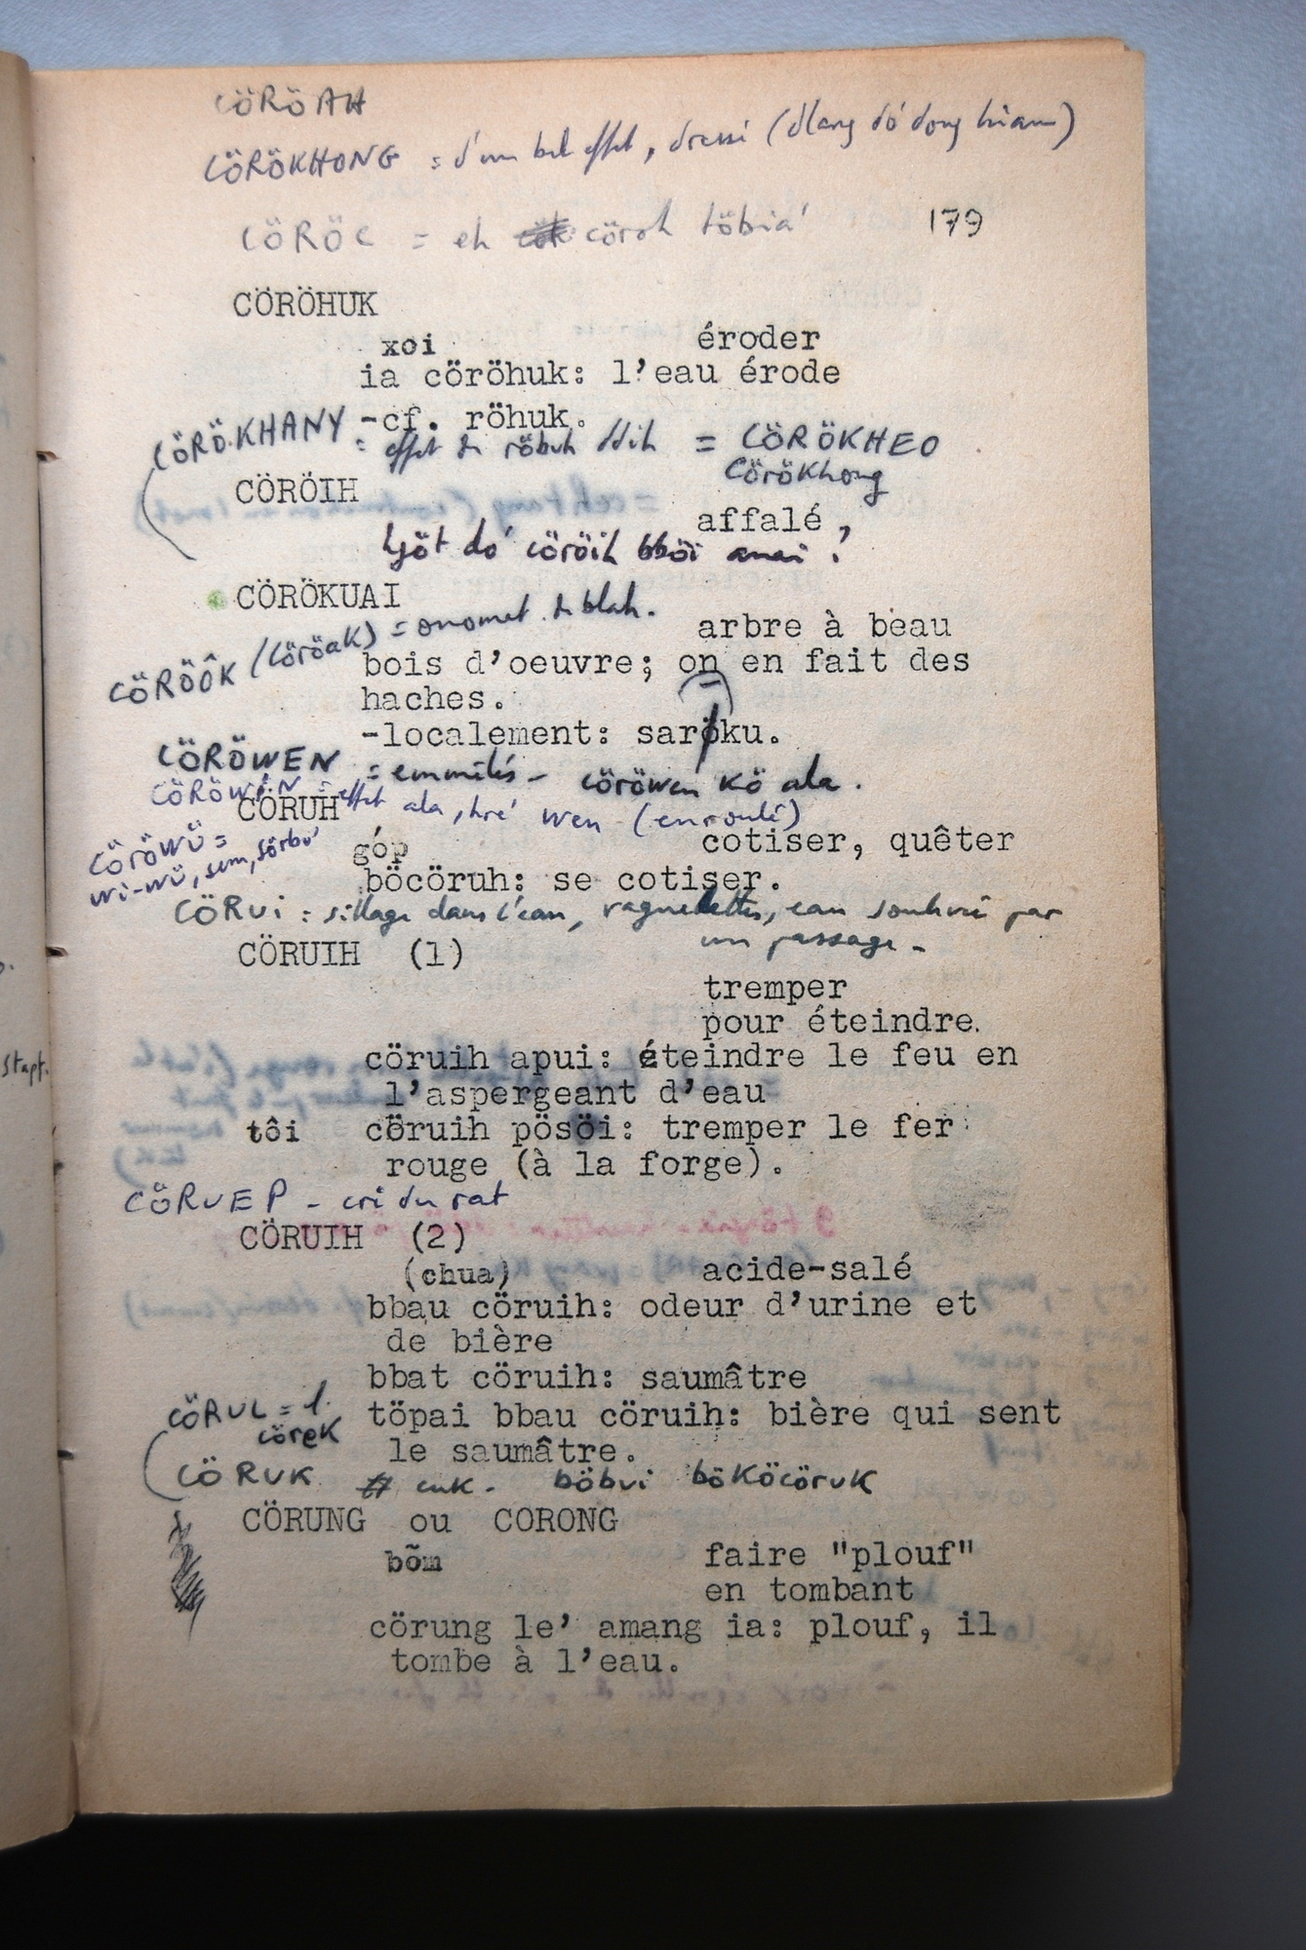 CÖRÖAH
CÖRÖKHONG = d'un bel effet, dressé (dlang dó dong hiam)
CÖRÖC = eh cöroh töbia'
179
CÖRÖHUK
xoi éroder
ia cöröhuk: l'eau érode
-cf. röhuk.
CÖRÖKHANY = effet de röbuh ddih = CÖRÖKHEO
Cörökhong
CÖRÖIH
affalé,
dó cöröih bböi anai!
CÖRÖKUAI
arbre à beau
CÖRÖÔK (cöröak) = onomat. de blah.
bois d'oeuvre; on en fait des
haches.
-localement: saröku.
CÖRÖWEN = emmêlés - cöröwen kö ala.
CÖRÖWÉN = effet ala, hré wen (enroulé)
CÖRUH
CÖRÖWÜ =
wi-wü, sem, sörbó
góp cotiser, quêter
böcöruh: se cotiser.
CÖRUI : sillage dans l'eau, vaguelettes, eau soulevée par
un passage -
CÖRUIH (1)
tremper
pour éteindre.
cöruih apui: éteindre le feu en
l'aspergeant d'eau
tôi cöruih pösöi: tremper le fer
rouge (à la forge).
CÖRUEP - cri du rat
CÖRUIH (2)
(chua) acide-salé
bbau cöruih: odeur d'urine et
de bière
bbat cöruih: saumâtre
CÖRUL = l.
cörek
töpai bbau cöruih: bière qui sent
le saumâtre.
CÖRUK # cuk - böbui bököcöruk
CÖRUNG ou CORONG
bõm faire "plouf"
en tombant
cörung le' amang ia: plouf, il
tombe à l'eau.
stapf.